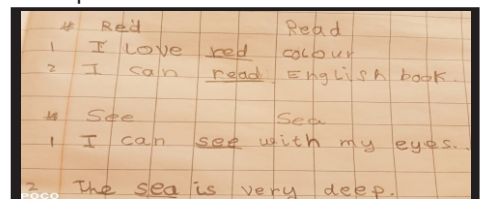 # Red Read
1 I Love red colour
2 I can read English book.
# See Sea
1 I can see with my eyes.
2 The sea is very deep.
POCO